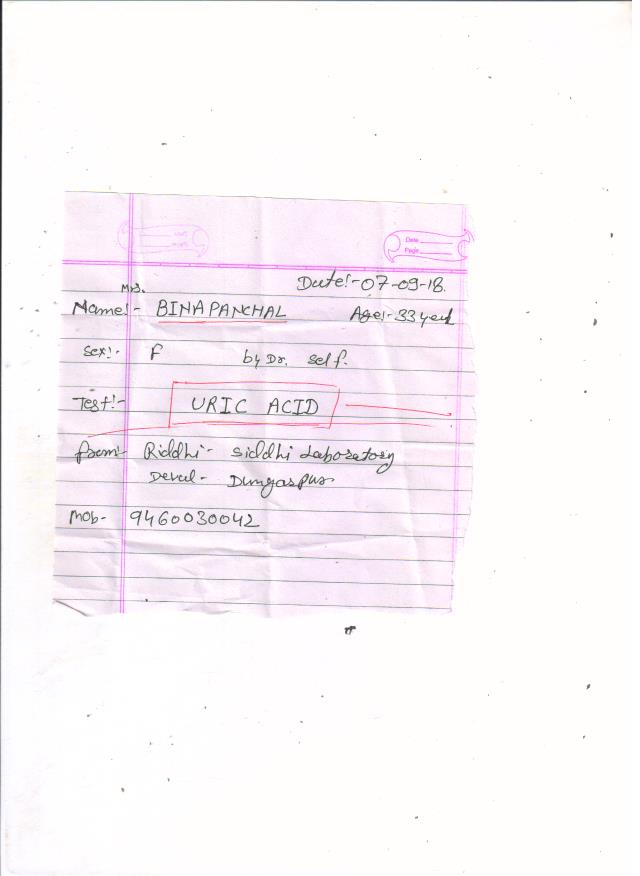 Date
Page
Date:- 07-09-18.
Mrs.
Name:- BINA PANCHAL Age:- 33 year
Sex:- F by Dr. self.
Test:- URIC ACID
from:- Riddhi- Siddhi Laboratory
Deval- Dungarpur
Mob- 9460030042